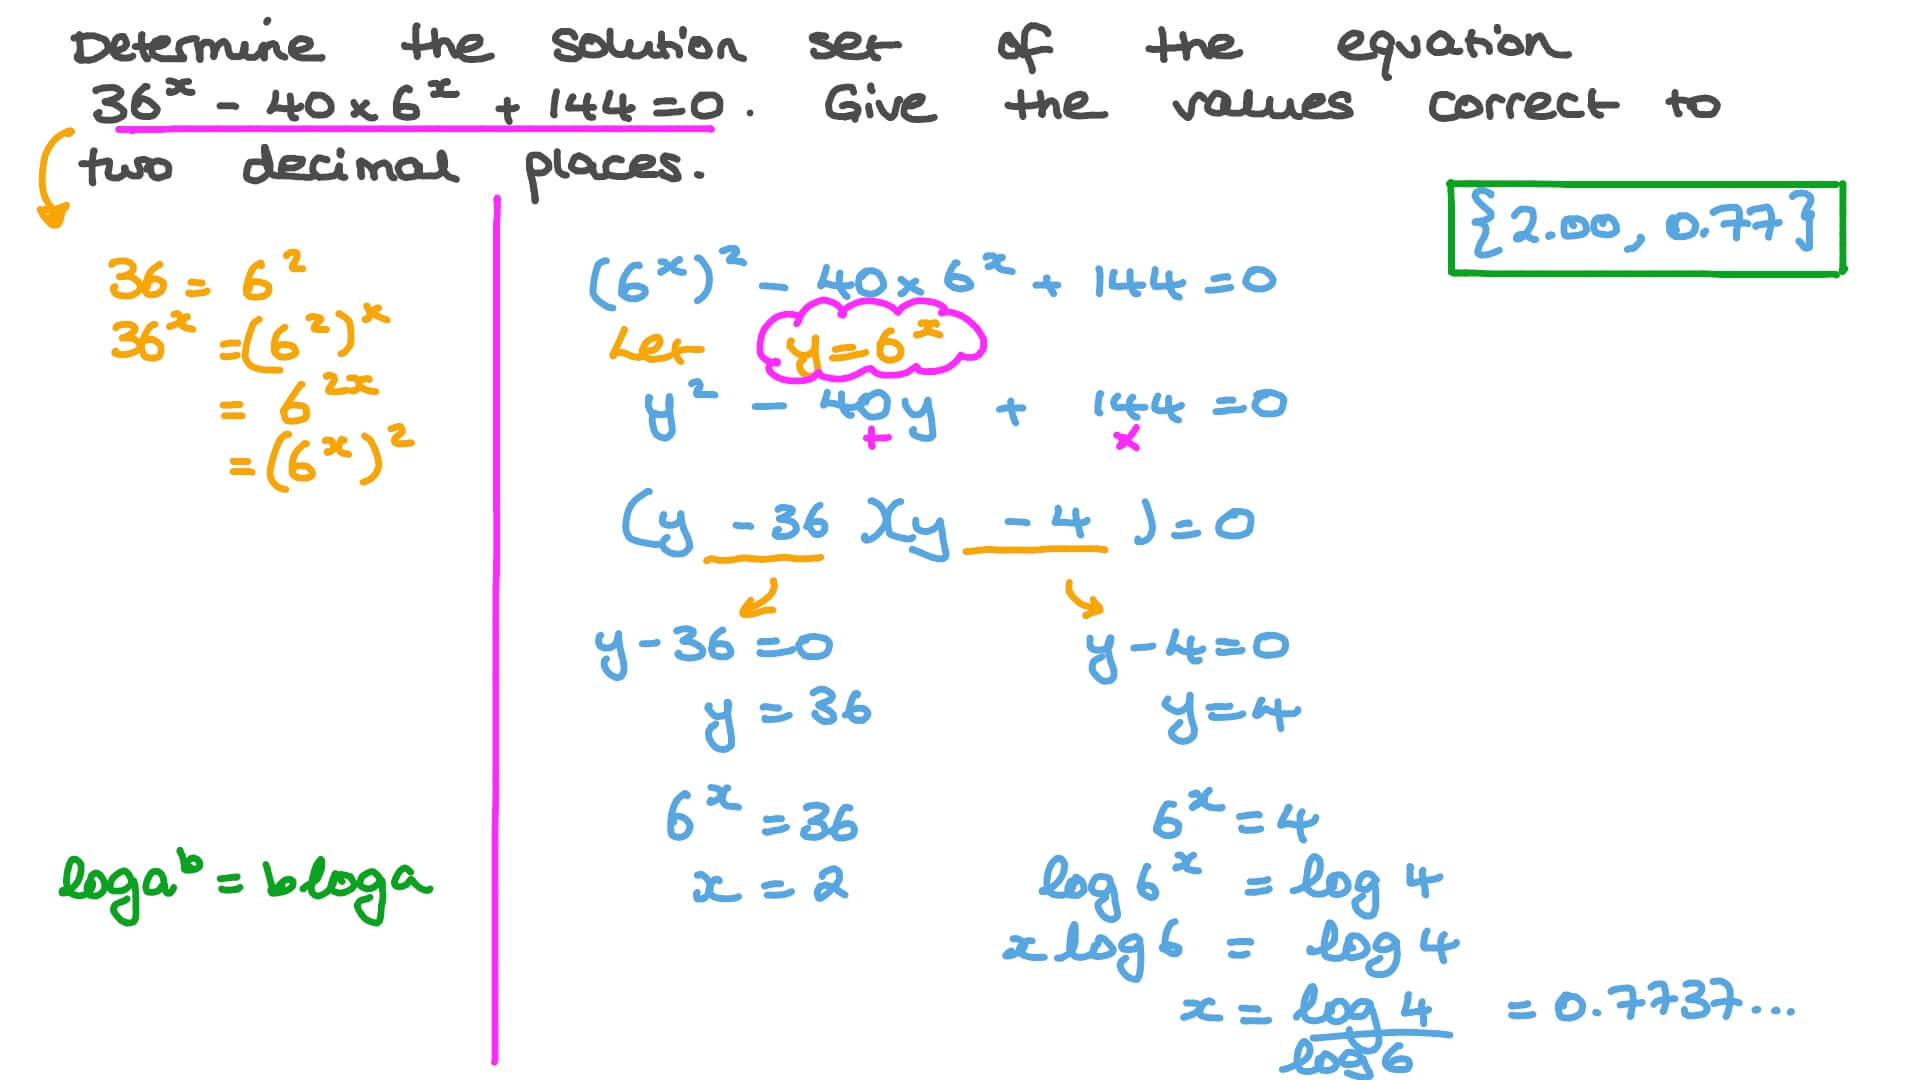 Determine the solution set of the equation
36^x - 40 × 6^x + 144 = 0. Give the values correct to
two decimal places.
{2.00, 0.77}
36 = 6^2
36^x = (6^2)^x
= 6^2x
= (6^x)^2
log a^b = b log a
(6^x)^2 - 40 × 6^x + 144 = 0
Let y = 6^x
y^2 - 40y + 144 = 0
+ ×
(y - 36)(y - 4) = 0
y - 36 = 0
y = 36
6^x = 36
x = 2
y - 4 = 0
y = 4
6^x = 4
log 6^x = log 4
x log 6 = log 4
x = log 4 / log 6 = 0.7737...